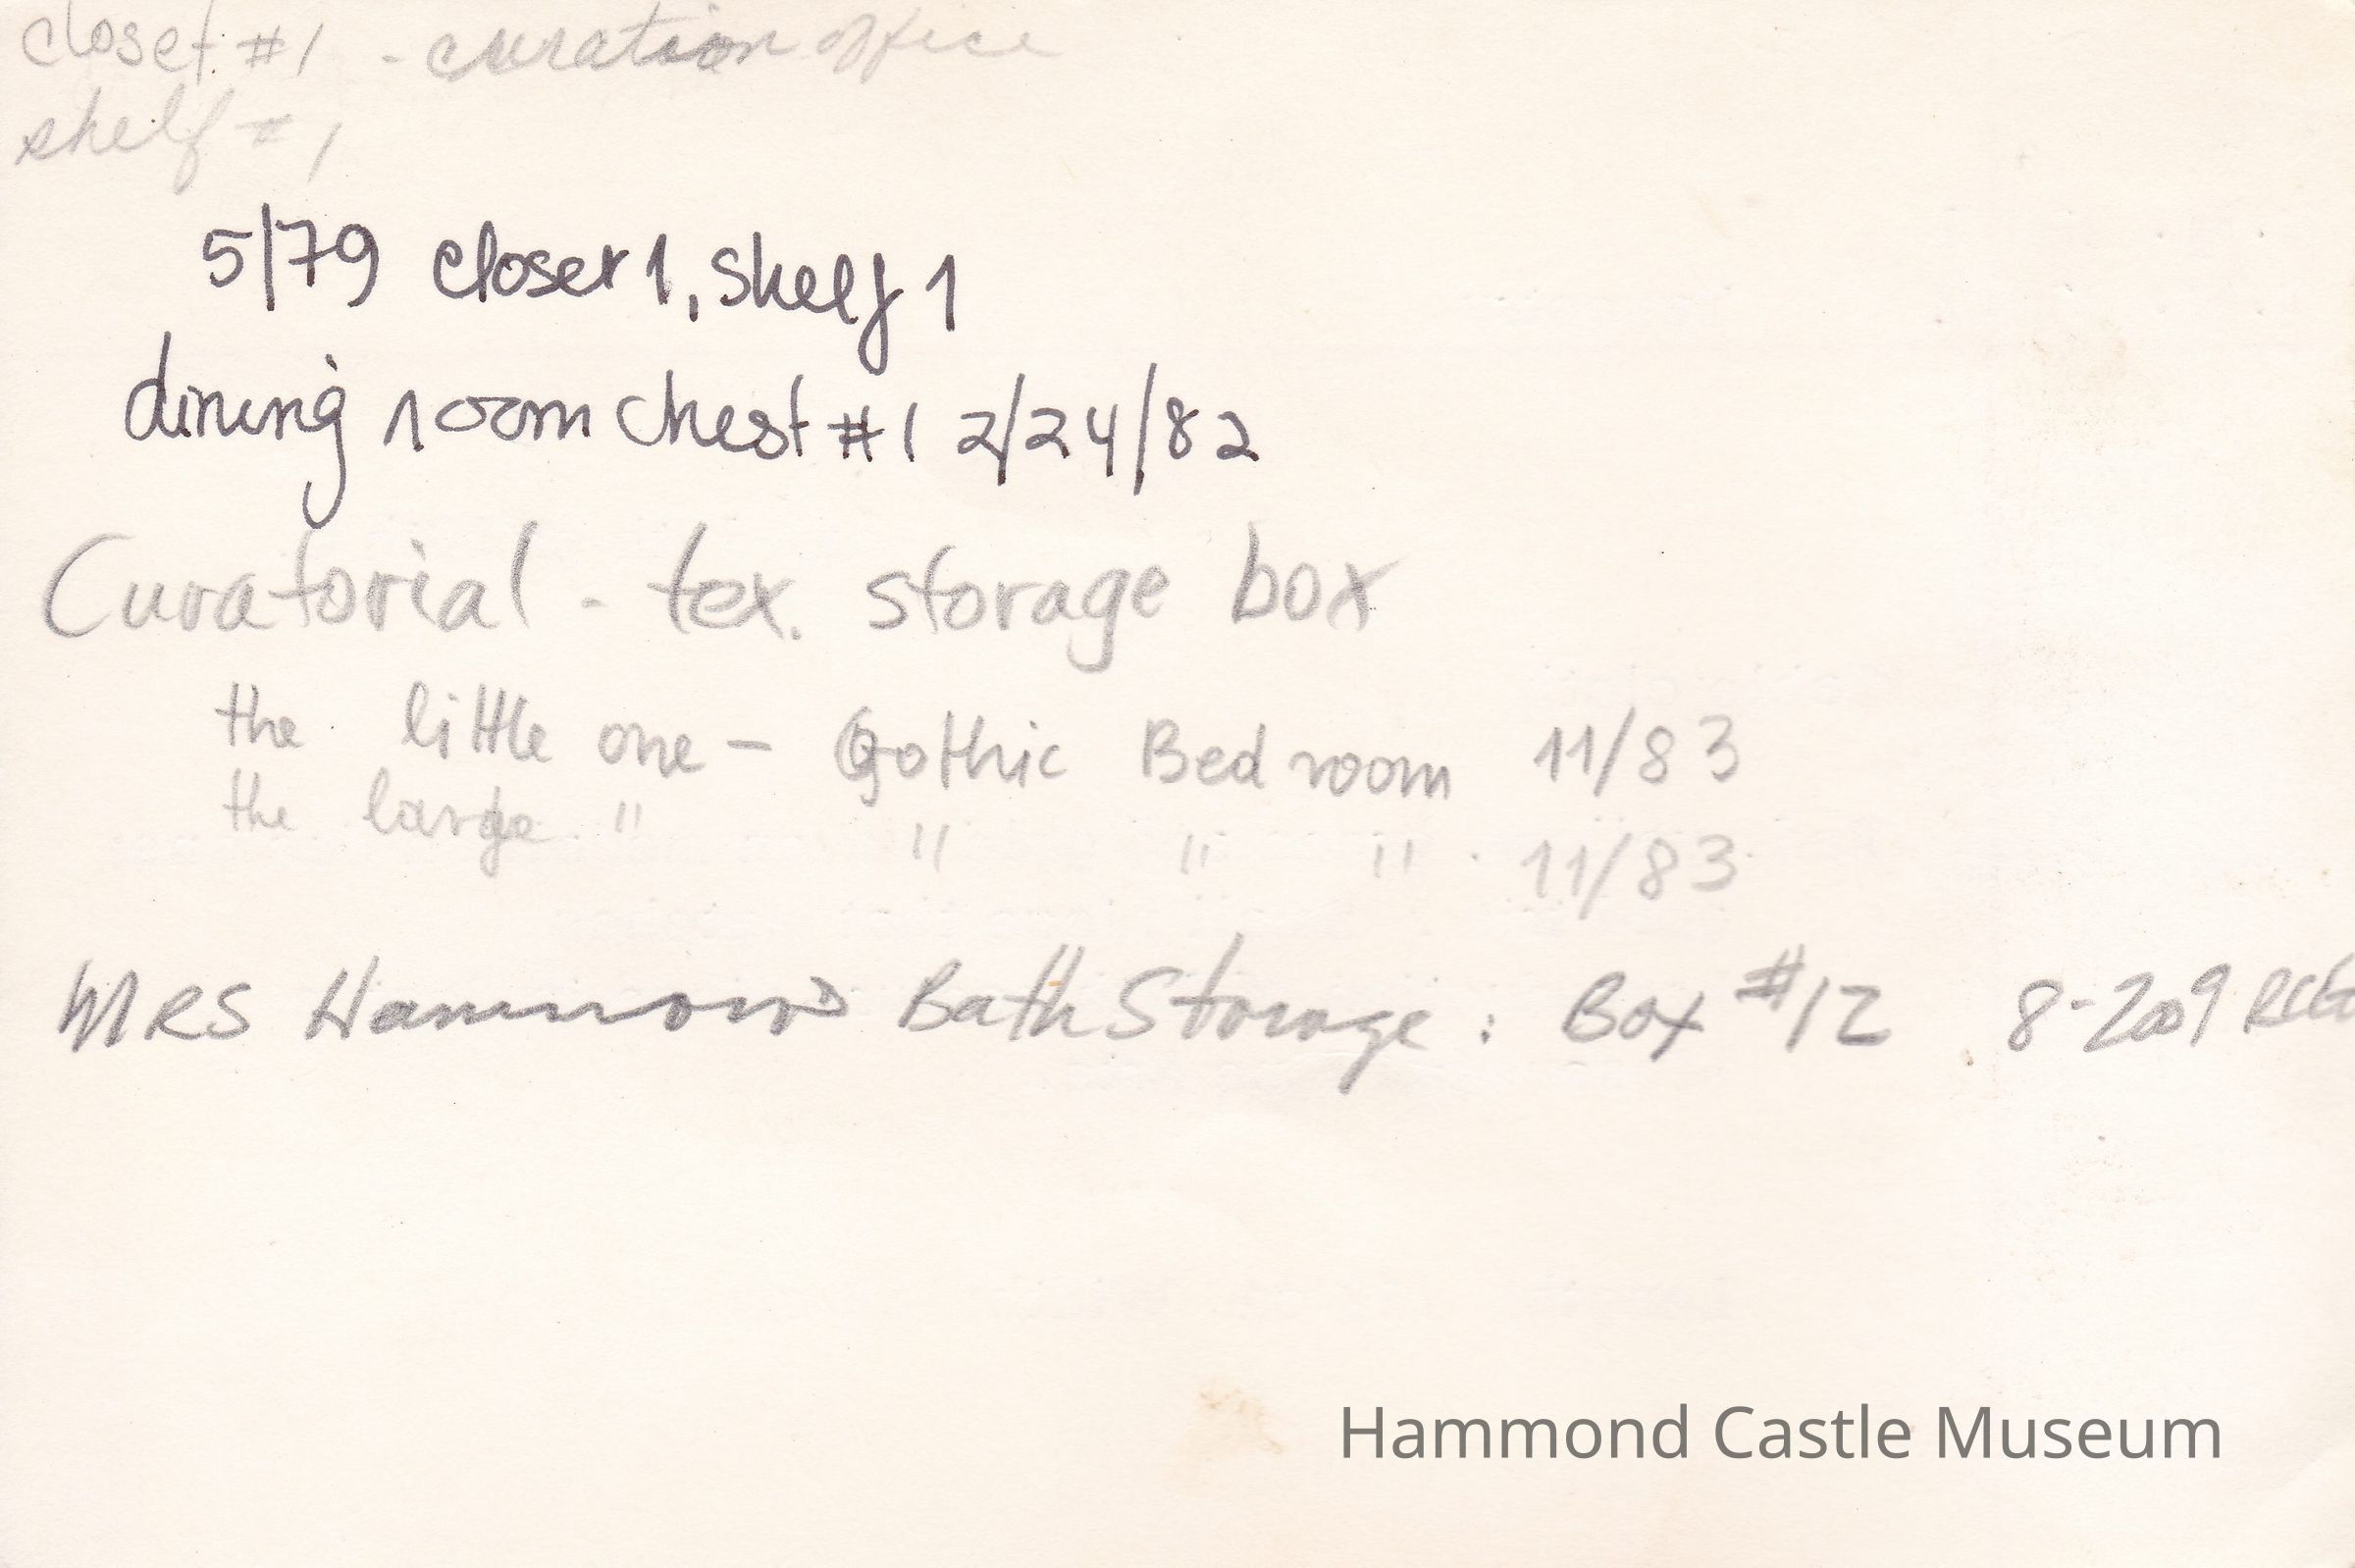 closet #1 - curation office
shelf #1
5/79 closet 1, shelf 1
dining room chest #1 2/24/82
Curatorial - tex. storage box
the little one - Gothic Bedroom 11/83
the large " " " " 11/83
MRS Hammond Bath Storage : Box #12 8-2009
Hammond Castle Museum